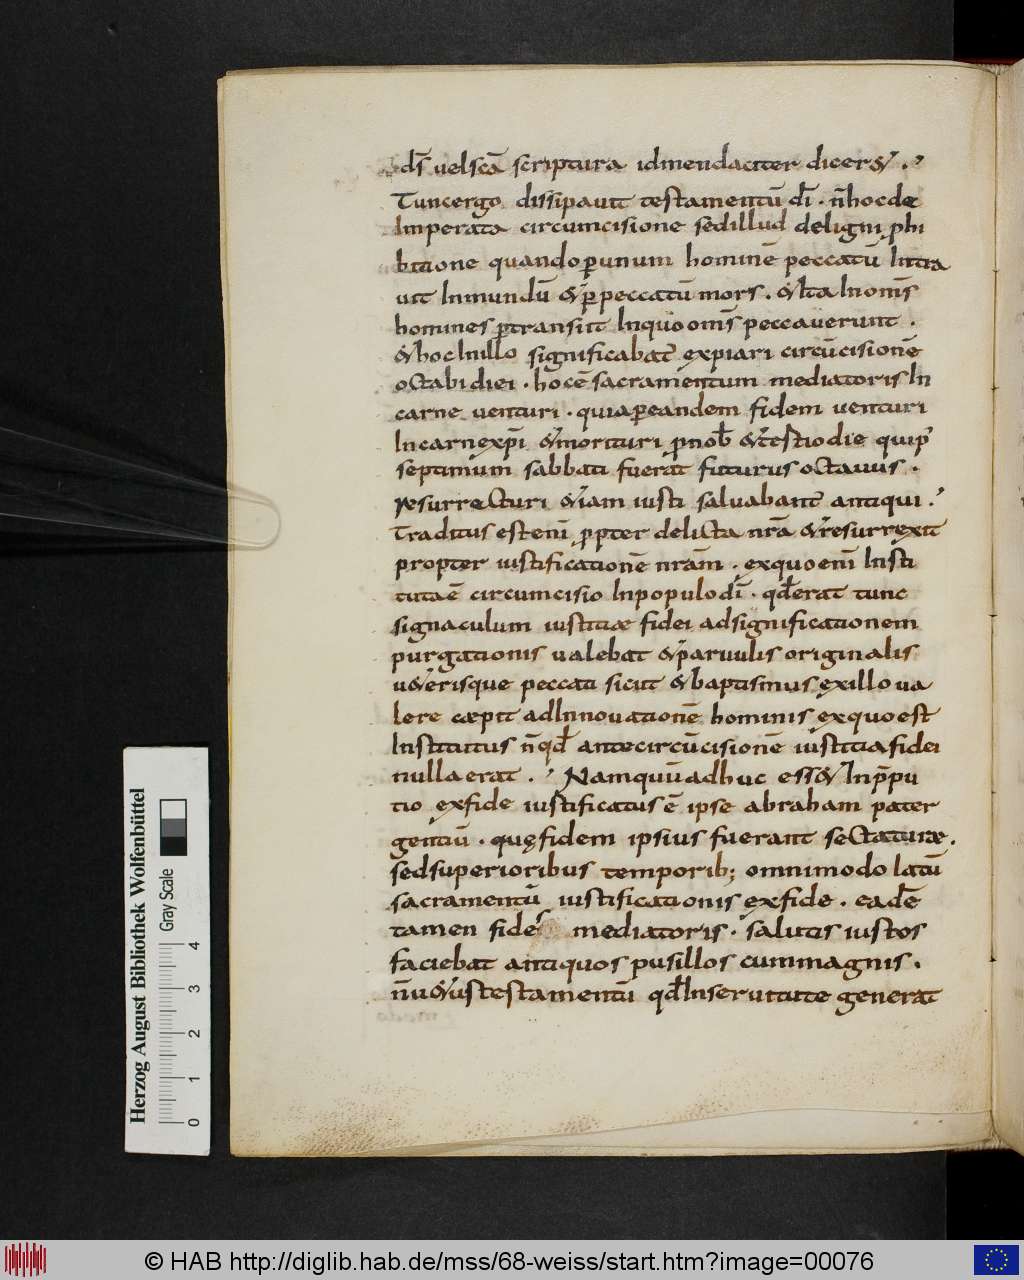 ds̄ uelscā scriptura idmendaciter dicer&.
Tuncergo dissipauit testamentū dī. n̄hocde
Imperata circumcisione sedillud deligni phi
bitione quandop̱unum hominē peccatū Intra
uit Inmundū &p̱peccatū mors. &Ita Inomīs
homines p̱transiit Inquo omīs peccauerunt.
&hocInillo significabat̄ expiari circūcisionē
octabi diei. hocē sacramentum mediatoris In
carne uenturi. quiap̱eandem fidem uenturi
Incarnexp̄i &morituri p̱nob̄ &testiodie quip̱
septimum sabbati fuerat futurus octauus.
resurrecturi &iam iusti saluabant̄ antiqui.
Traditus estenī p̱pter delicta nrā &resurrexit
propter iustificationē nrām. exquoenī Insti
tutaē circumcisio Inpopulo dī. qđerat tunc
signaculum iustitiæ fidei adsignificationem
purgationis ualebat &paruulis originalis
u&erisque peccati sicut &baptismus exillo ua
lere cæpit adInnouationē hominis exquo est
Institutus n̄qđ antecircūcisionē iustitia fidei
nulla erat. Namquūadhuc ess& Inp̄pu
tio exfide iustificatusē ipse abraham pater
gentiū. quęfidem ipsius fuerant sectaturæ.
sedsuperioribus temporib; omnimodo latū
sacramentū iustificationis exfide. eadē
tamen fides mediatoris. salutis iustos
faciebat antiquos pusillos cummagnis.
n̄u&ustestamentū qđInseruitute generat
Herzog August Bibliothek Wolfenbüttel
Gray Scale
0 1 2 3 4
© HAB http://diglib.hab.de/mss/68-weiss/start.htm?image=00076